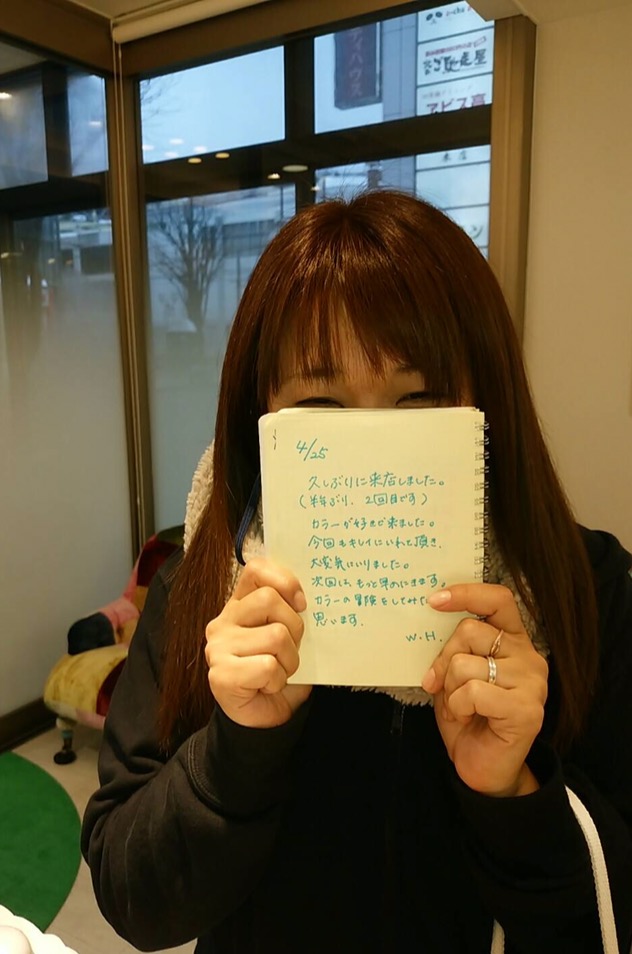 ティハウス
ご馳走屋
アビス高
4/25
久しぶりに来店しました。
(半年ぶり、2回目です)
カラーが好きで来ました。
今回もキレイにいれて頂き、
大変気にいりました。
次回は、もっと早めにきます。
カラーの冒険をしてみた
思います。
W.H.